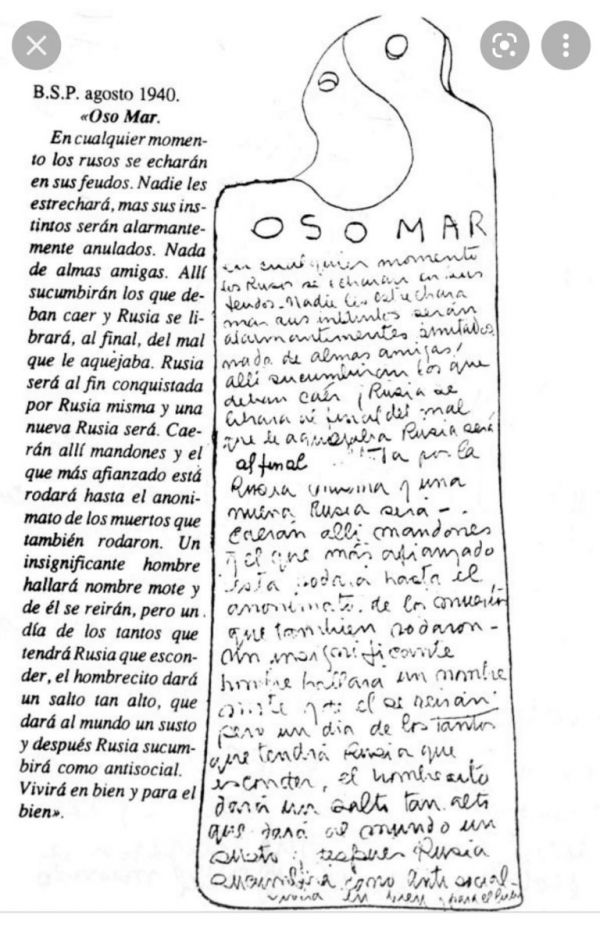 B.S.P. agosto 1940.
«Oso Mar.
En cualquier momen-
to los rusos se echarán
en sus feudos. Nadie les
estrechará, mas sus ins-
tintos serán alarmante-
mente anulados. Nada
de almas amigas. Allí
sucumbirán los que de-
ban caer y Rusia se li-
brará, al final, del mal
que le aquejaba. Rusia
será al fin conquistada
por Rusia misma y una
nueva Rusia será. Cae-
rán allí mandones y el
que más afianzado está
rodará hasta el anoni-
mato de los muertos que
también rodaron. Un
insignificante hombre
hallará nombre mote y
de él se reirán, pero un
día de los tantos que
tendrá Rusia que escon-
der, el hombrecito dará
un salto tan alto, que
dará al mundo un susto
y después Rusia sucum-
birá como antisocial.
Vivirá en bien y para el
bien».
OSO MAR
en cualquier momento
los Rusos se echaran en sus
feudos. Nadie les
mas sus serán
de almas amigas!
alli sucumbiran los que
deban caér ¡Rusia se
del mal
que le Rusia será
al final por la
Rusia y una
nueva Rusia sera -
caerán alli mandones
y el que más afianzado
está rodará hasta el
de los
que tambien rodaron -
un
hombre hallara un nombre
y de el se reirán
pero un dia de los tantos
que tendrá Rusia que
esconder, el
dará un salto tan alto
que dará al mundo un
susto y despues Rusia
sucumbirá como anti social -
vivira en bien y para el bien